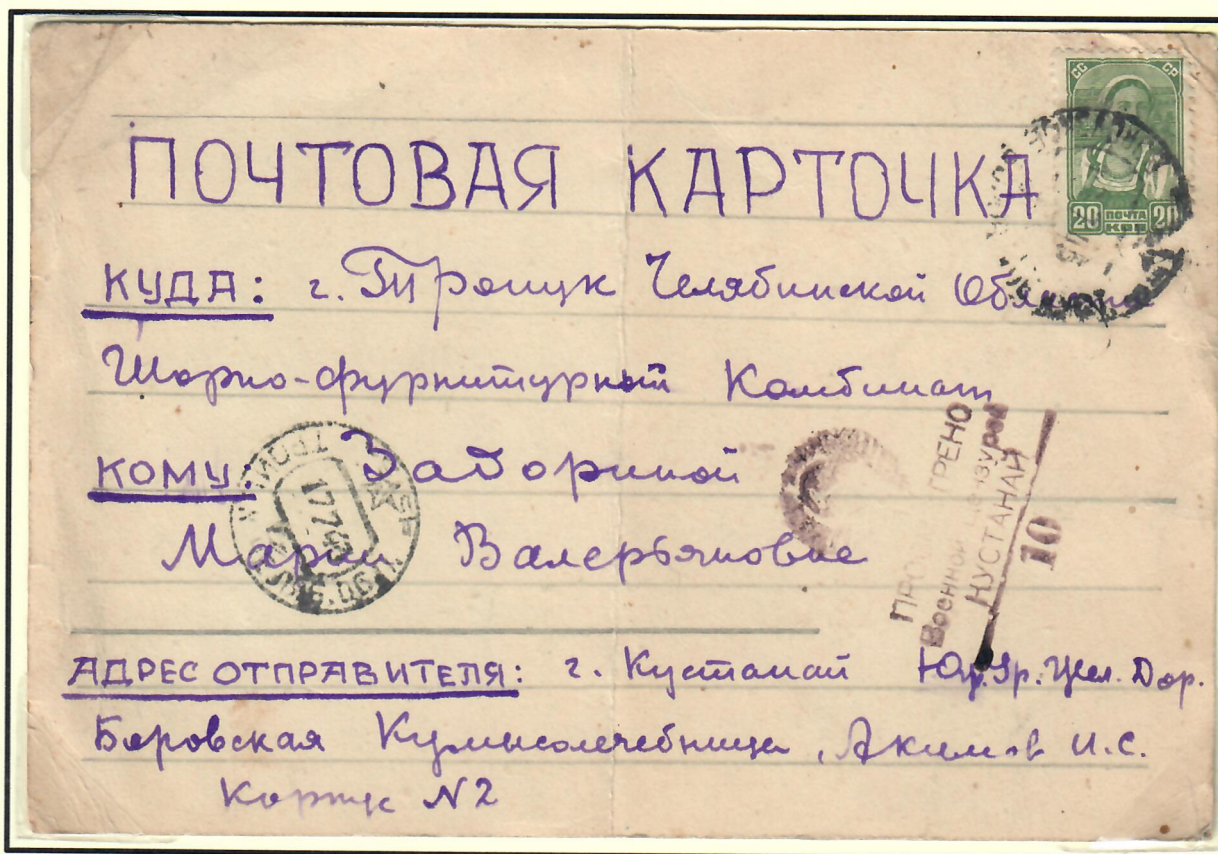 СС СР
20 ПОЧТА КОП 20
ПОЧТОВАЯ КАРТОЧКА
КУДА: г. Троицк Челябинской Области
Шорно-фурнитурный Комбинат
КОМУ: Забориной
Марии Валерьяновне
ПРОСМОТРЕНО
Военной Цензурой
КУСТАНАЙ
10
АДРЕС ОТПРАВИТЕЛЯ: г. Кустанай Юж. Ур. Жел. Дор.
Боровская Кумысолечебница, Акимов И.С.
Корпус N2